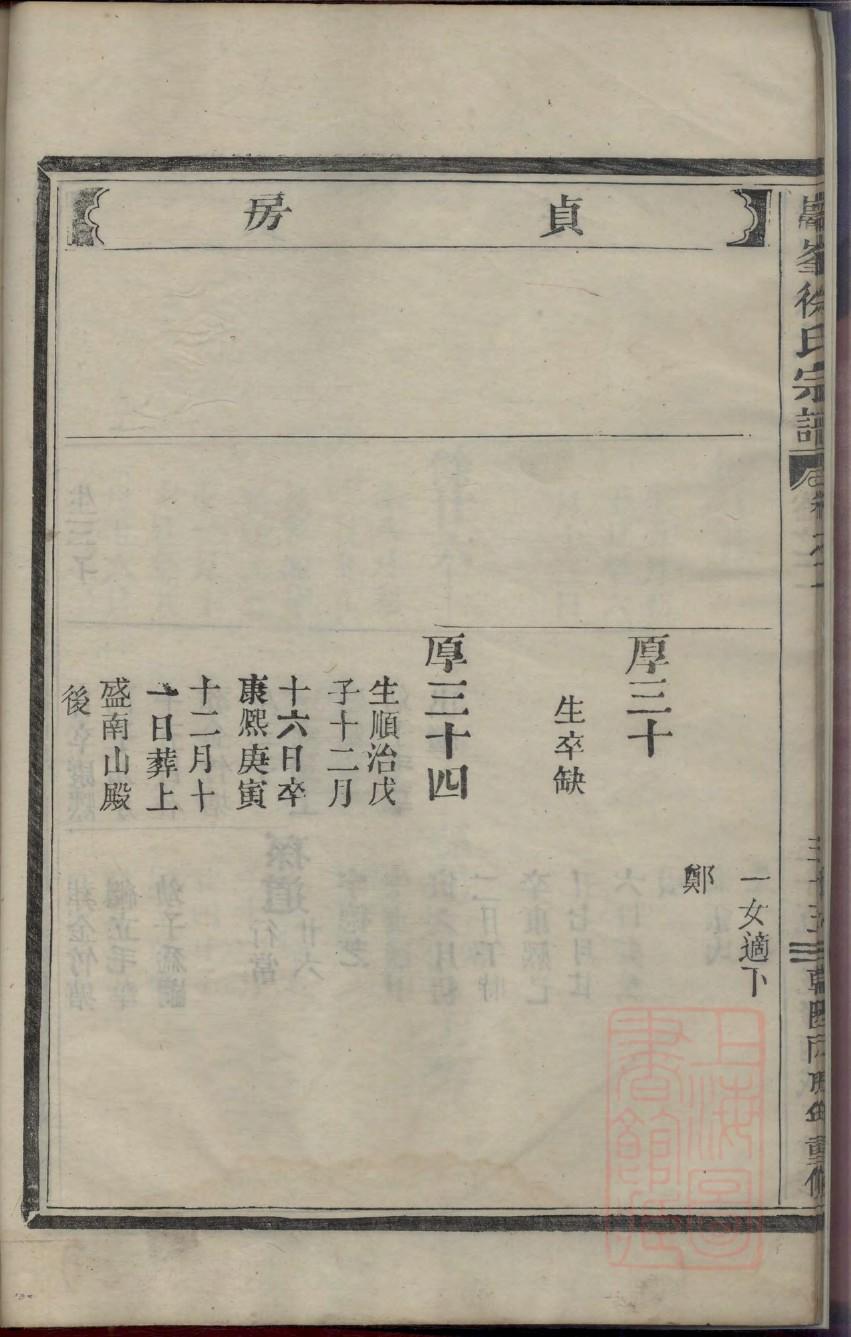 貞房
一女適下
鄭
厚三十
生卒缺
厚三十四
生順治戊
子十二月
十六日卒
康熙庚寅
十二月十
一日葬上
盛南山殿
後
徐氏宗譜
重修
上海圖書館藏